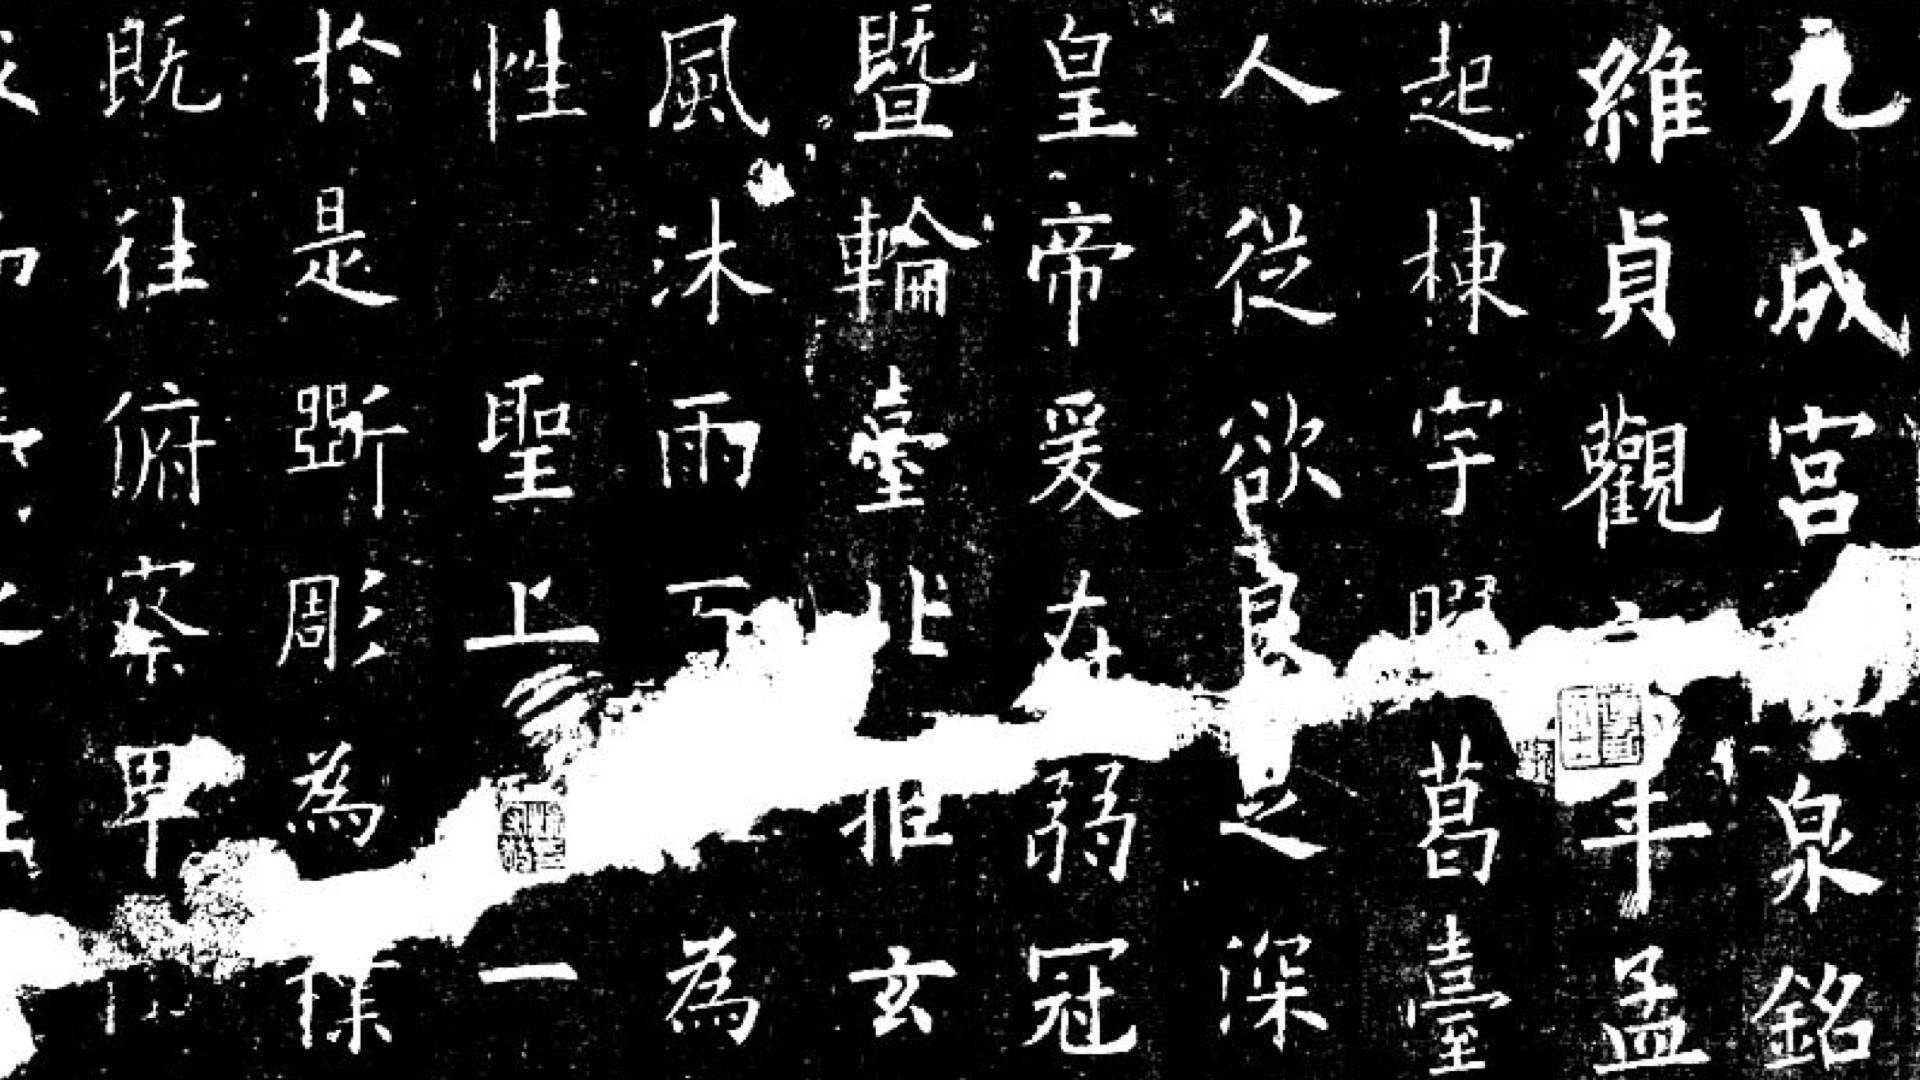 九成宮泉銘
維貞觀年孟
起棟宇膠葛臺
人從欲良深
皇帝爰在弱冠
暨輪臺北拒玄
風沐雨為
性聖上一
於是斲彫為樸
既往俯察卑